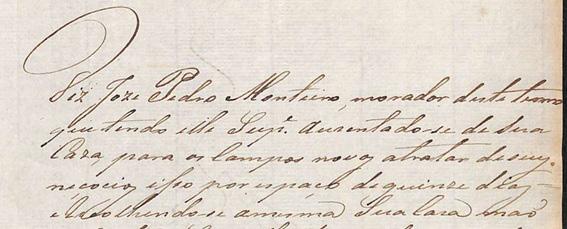 Diz Joze Pedro Monteiro, morador deste termo
que tendo elle Supe. auzentado-se de sua
Caza para os Campos novos atratar de seus
negocios, isso por espaço de quinze dias
recolhendo-se amesma Sua Caza